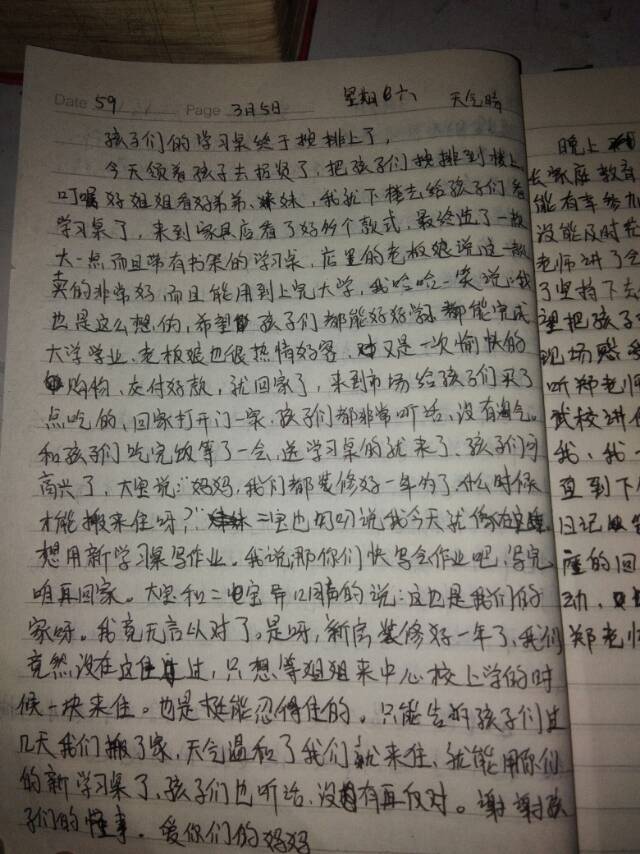 Date 59 Page 3月5日 星期六 天气晴
孩子们的学习桌终于按排上了,
今天领着孩子去招贤了,把孩子们按排到楼上
叮嘱好姐姐看好弟弟、妹妹,我就下楼去给孩子们看
学习桌了,来到家具店看了好几个款式,最终选了一款
大一点而且带有书架的学习桌,店里的老板娘说这一款
卖的非常好,而且能用到上完大学,我哈哈一笑说:我
也是这么想的,希望孩子们都能好好学习都能完成
大学学业、老板娘也很热情好客、又是一次愉快的
购物、交付好款,就回家了,来到市场给孩子们买了
点吃的,回家打开门一家,孩子们都非常听话,没有淘气。
和孩子们吃完饭等了一会,送学习桌的就来了、孩子们可
高兴了,大宝说:“妈妈,我们都装修好一年为了、什么时候
才能搬来住呀?”二宝也说我今天就
想用新学习桌写作业。我说,那你们快写会作业吧,写完
咱再回家。大宝和二宝异口同声的说:这也是我们的
家呀。我竟无言以对了。是呀,新房装修好一年了,我们
竟然没在这住过,只想等姐姐来中心校上学的时
候一块来住。也是挺能忍得住的。只能告诉孩子们过
几天我们搬了家,天气温和了我们就来住、就能用你们
的新学习桌了、孩子们也听话、没有再反对。谢谢孩
子们的懂事.爱你们的妈妈
晚上
长家庭教育
能有幸参加
没能及时
老师讲了
了坚持下去
望把孩子
现场
听郑老师
武校讲
我,我一
直到下
日记
座的回
动,
郑老师